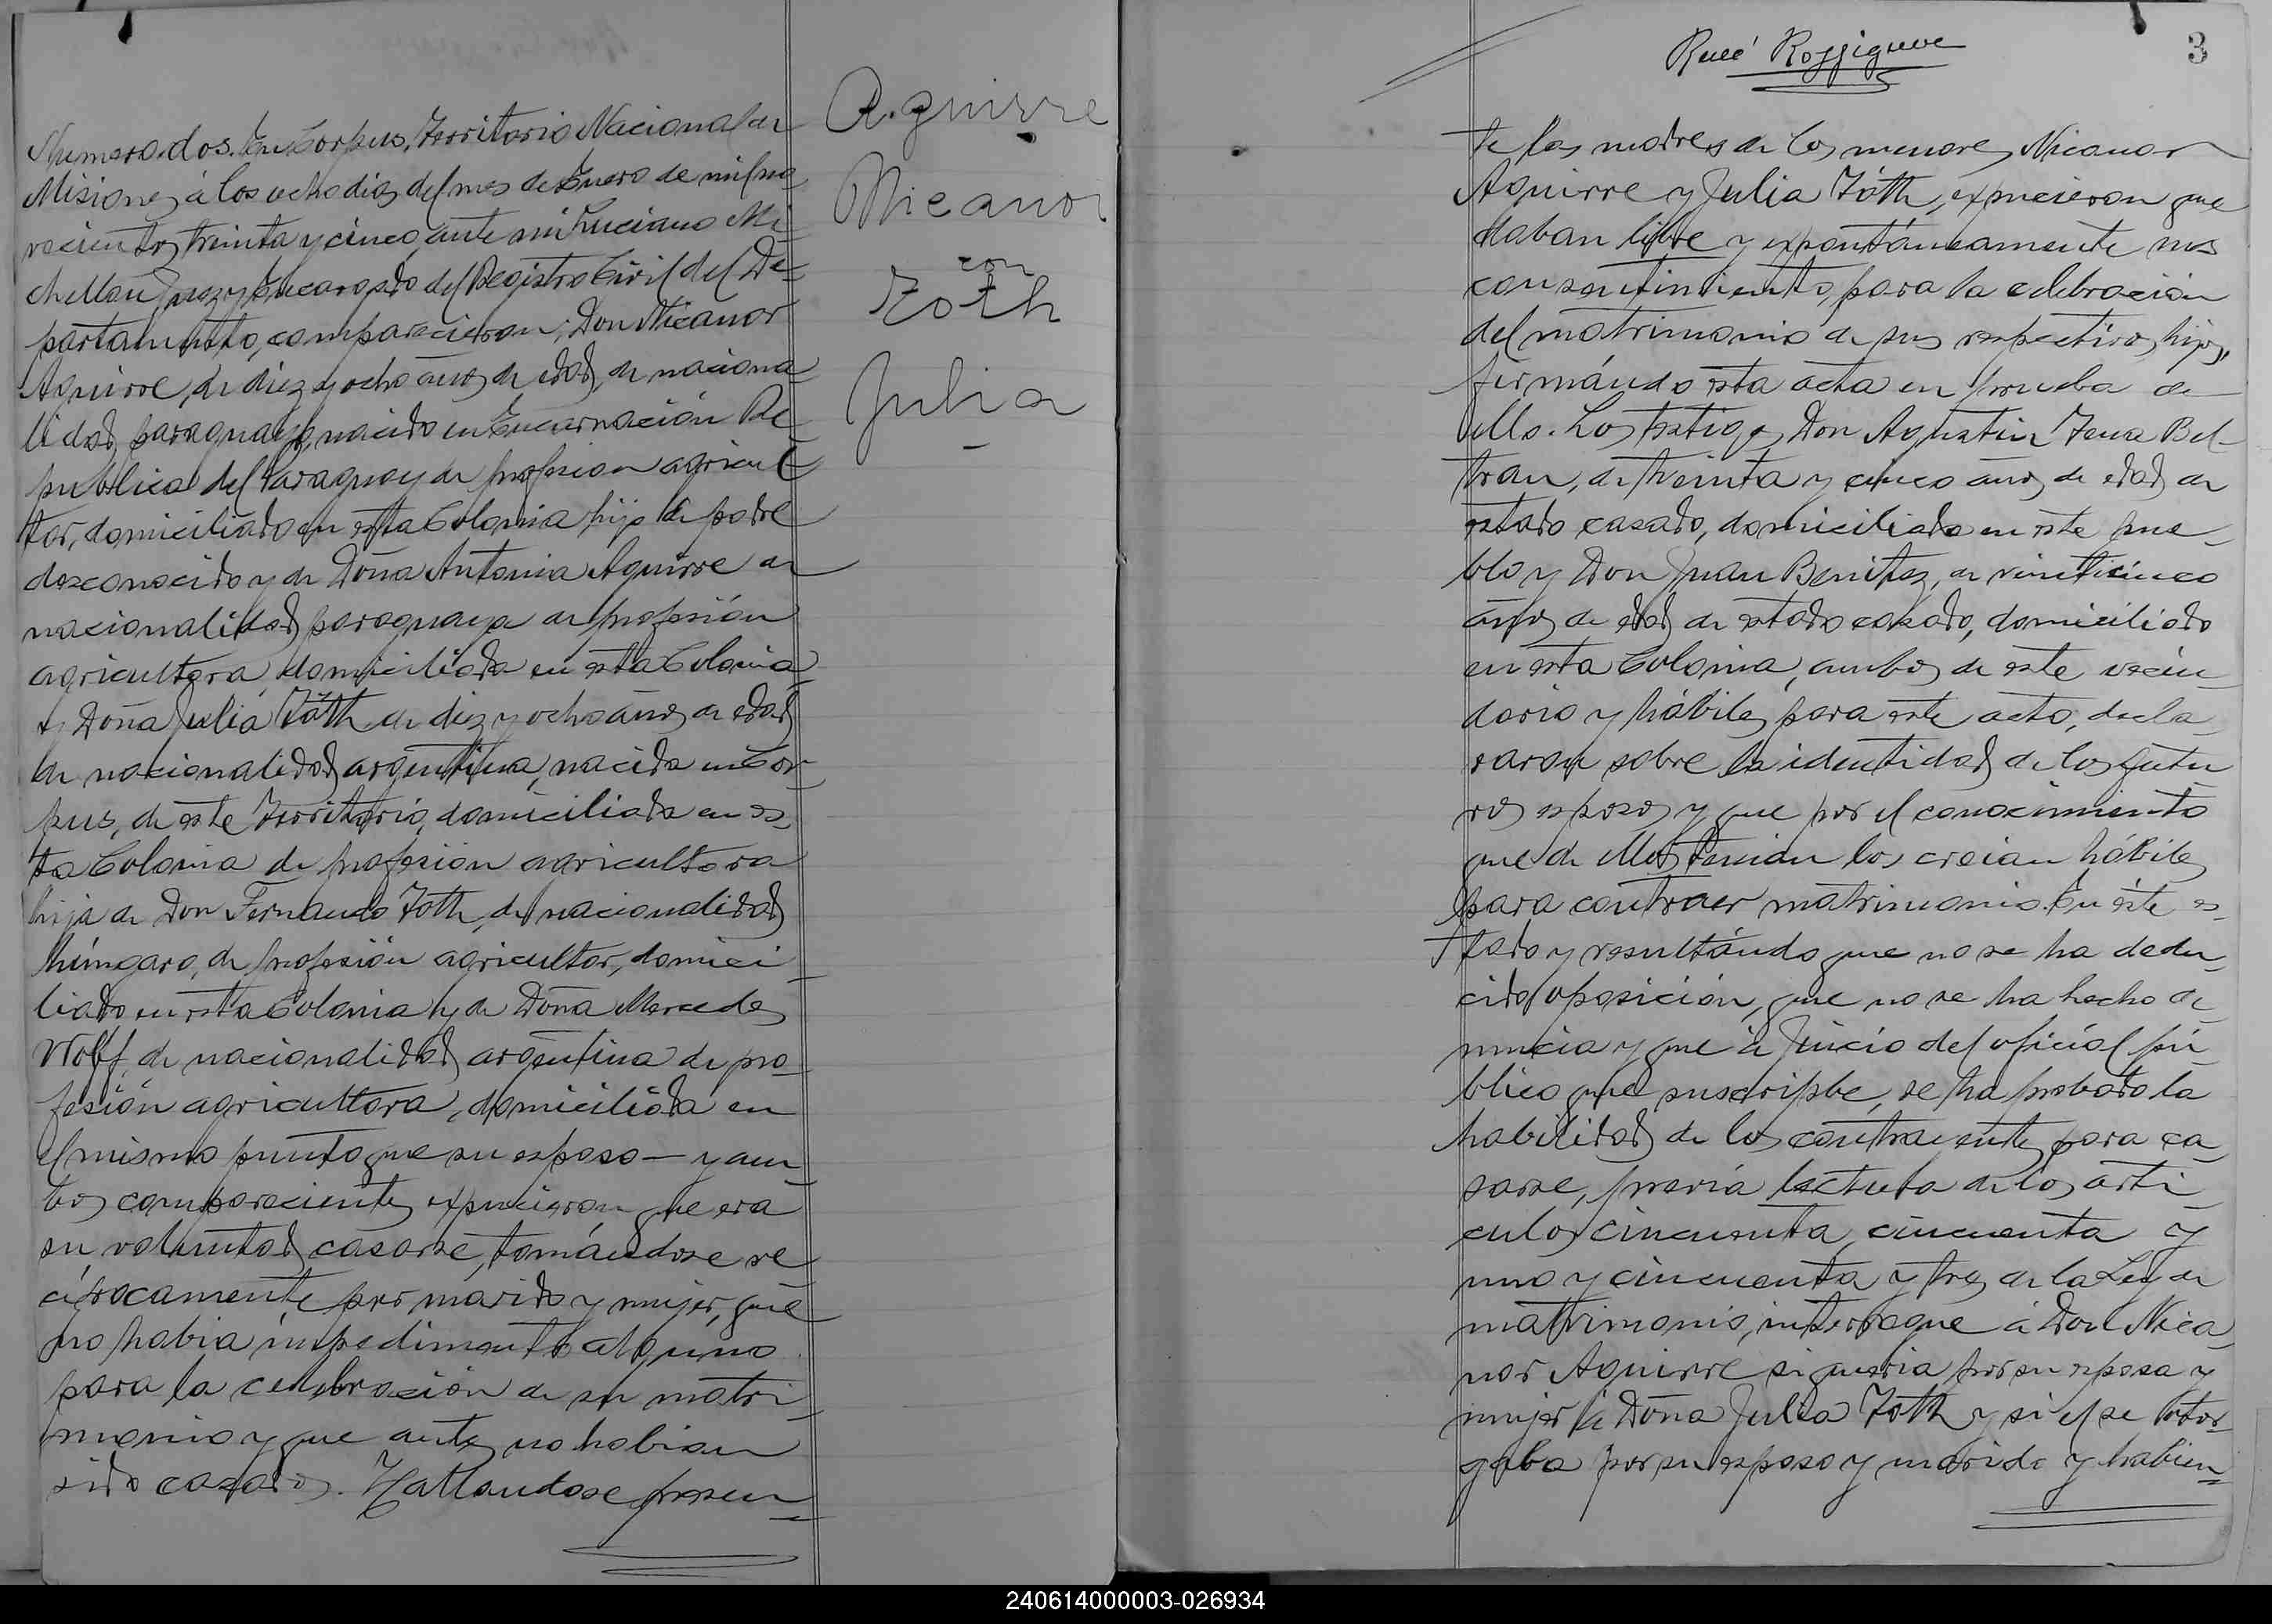 Numero dos. En Corpus, Territorio Nacional de
Misiones, á los ocho dias del mes de Enero de mil no-
vecientos treinta y cinco, ante mi Luciano Mi-
chellon, Juez y Encargado del Registro Civil del De-
partamento, comparecieron: Don Nicanor
Aguirre, de diez y ocho años de edad, de naciona-
lidad paraguaya, nacido en Encarnación Re-
publica del Paraguay de profesion agricul-
tor, domiciliado en esta Colonia hijo de padre
desconocido y de Doña Antonia Aguirre de
nacionalidad paraguaya de profesión
agricultora, domiciliada en esta Colonia
y Doña Julia Tóth de diez y ocho años de edad
de nacionalidad argentina, nacida en Cor-
pus, de este Territorio, domiciliada en es-
ta Colonia de profesión agricultora
hija de Don Fernando Toth, de nacionalidad
húngaro, de profesión agricultor, domici-
liado en esta Colonia y de Doña Mercedes
Wolff, de nacionalidad argentina de pro-
fesión agricultora, domiciliada en
el mismo punto que su esposo — y am-
bos comparecientes expucieron que era
su voluntad casarse, tomándose re-
ciprocamente por marido y mujer, que
no habia impedimento alguno
para la celebración de su matri-
monio y que antes no habian
sido casados. Hallandose presen-
Aguirre
Nicanor
con
Toth
Julia
René
3
te las madres de los menores Nicanor
Aguirre y Julia Tóth, expucieron que
daban libre y expontáneamente sus
consentimiento, para la celebración
del matrimonio de sus respectivos hijos,
firmándo esta acta en prueba de
ello. Los testigos Don Agustin Bel-
tran, de treinta y cinco años de edad de
estado casado, domiciliado en este pue-
blo y Don Juan Benitez, de veinticinco
años de edad de estado casado, domiciliado
en esta Colonia, ambos de este vecin-
dario y hábiles para este acto, decla-
raron sobre la identidad de los futu-
ros esposos y que por el conocimiento
que de ellos tenian los creian hábiles
para contraer matrimonio. En éste es-
tado y resultándo que no se ha dedu-
cido oposición, que no se ha hecho de-
nuncia y que á juicio del oficiál pú-
blico que suscripbe, se ha probado la
habilidad de los contrayentes para ca-
sarse, previa lectura de los arti-
culos cincuenta, cincuenta y
uno y cincuenta y tres de la Ley de
matrimonio, interrogue á Don Nica-
nor Aguirre si queria por su esposa y
mujer á Doña Julia Toth y si el se otor-
gaba por su esposo y marido y habien-
240614000003-026934